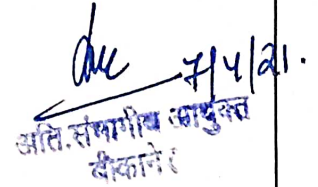 7/4/21.
अति.संभागीय आयुक्त
बीकानेर